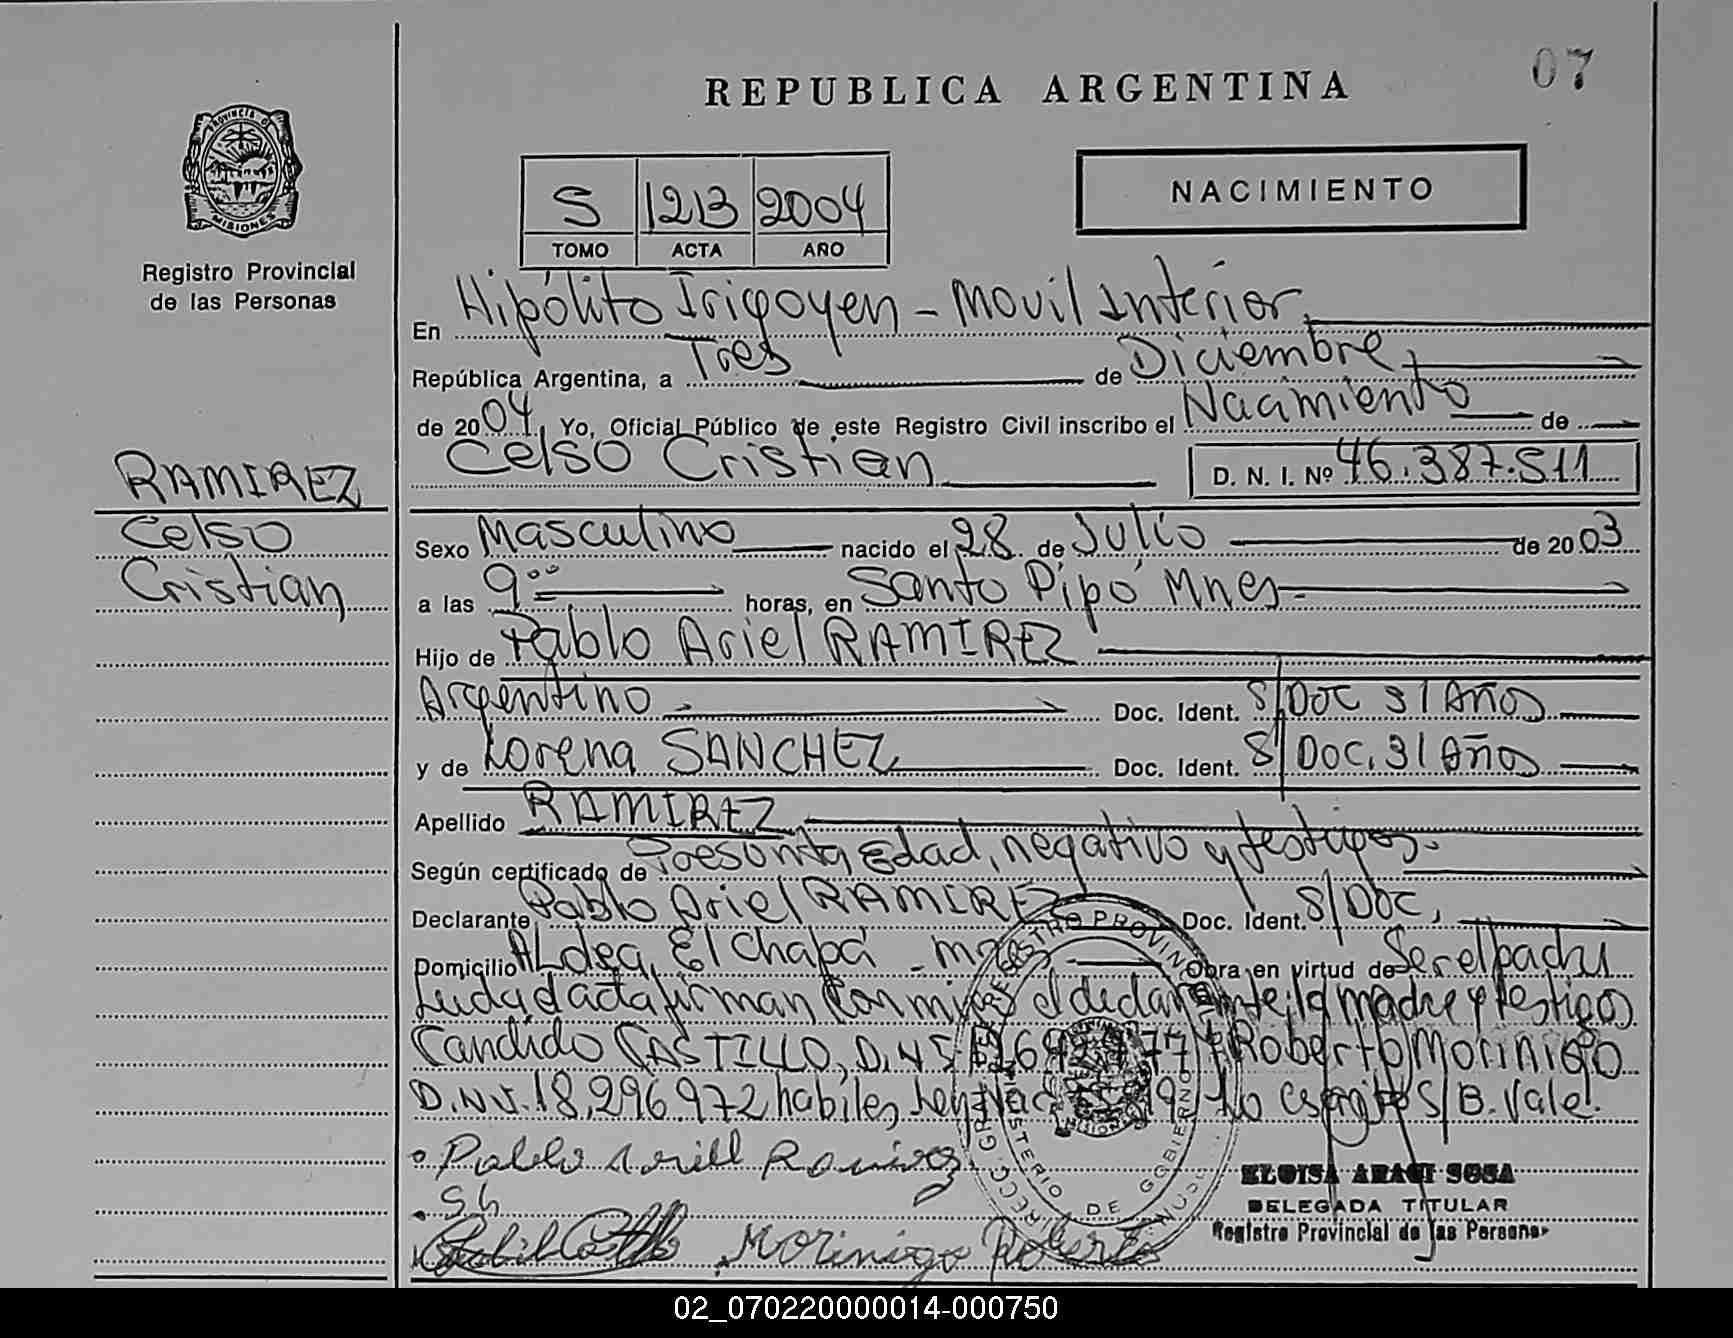 07
REPUBLICA ARGENTINA
PROVINCIA DE
MISIONES
Registro Provincial
de las Personas
S 1213 2004
TOMO ACTA AÑO
NACIMIENTO
En Hipólito Irigoyen - Movil Interior
República Argentina, a Tres de Diciembre
de 2004, Yo, Oficial Público de este Registro Civil inscribo el Nacimiento de
Celso Cristian D. N. I. Nº 46.387.511
RAMIREZ
Celso
Cristian
Sexo Masculino nacido el 28 de Julio de 2003
a las 9 00 horas, en Santo Pipó Mnes
Hijo de Pablo Ariel RAMIREZ
Argentino Doc. Ident. S/Doc 31 Años
y de Lorena SANCHEZ Doc. Ident. S/Doc. 31 Años
Apellido RAMIREZ
Según certificado de Presunta Edad, negativo y testigos.
Declarante Pablo Ariel RAMIREZ Doc. Ident. S/Doc,
Domicilio ALdea El Chapá - Obra en virtud de Ser el padre
acta firman Con migo el la madre y testigos
Candido CASTILLO, D.N.I. Roberto MoriniGo
D.N.I. 18,296,972 habiles, S/B. Vale.
Pablo Ramirez
Morinigo Roberto
ELOISA ARACI SOSA
DELEGADA TITULAR
Registro Provincial de las Personas
02_070220000014-000750